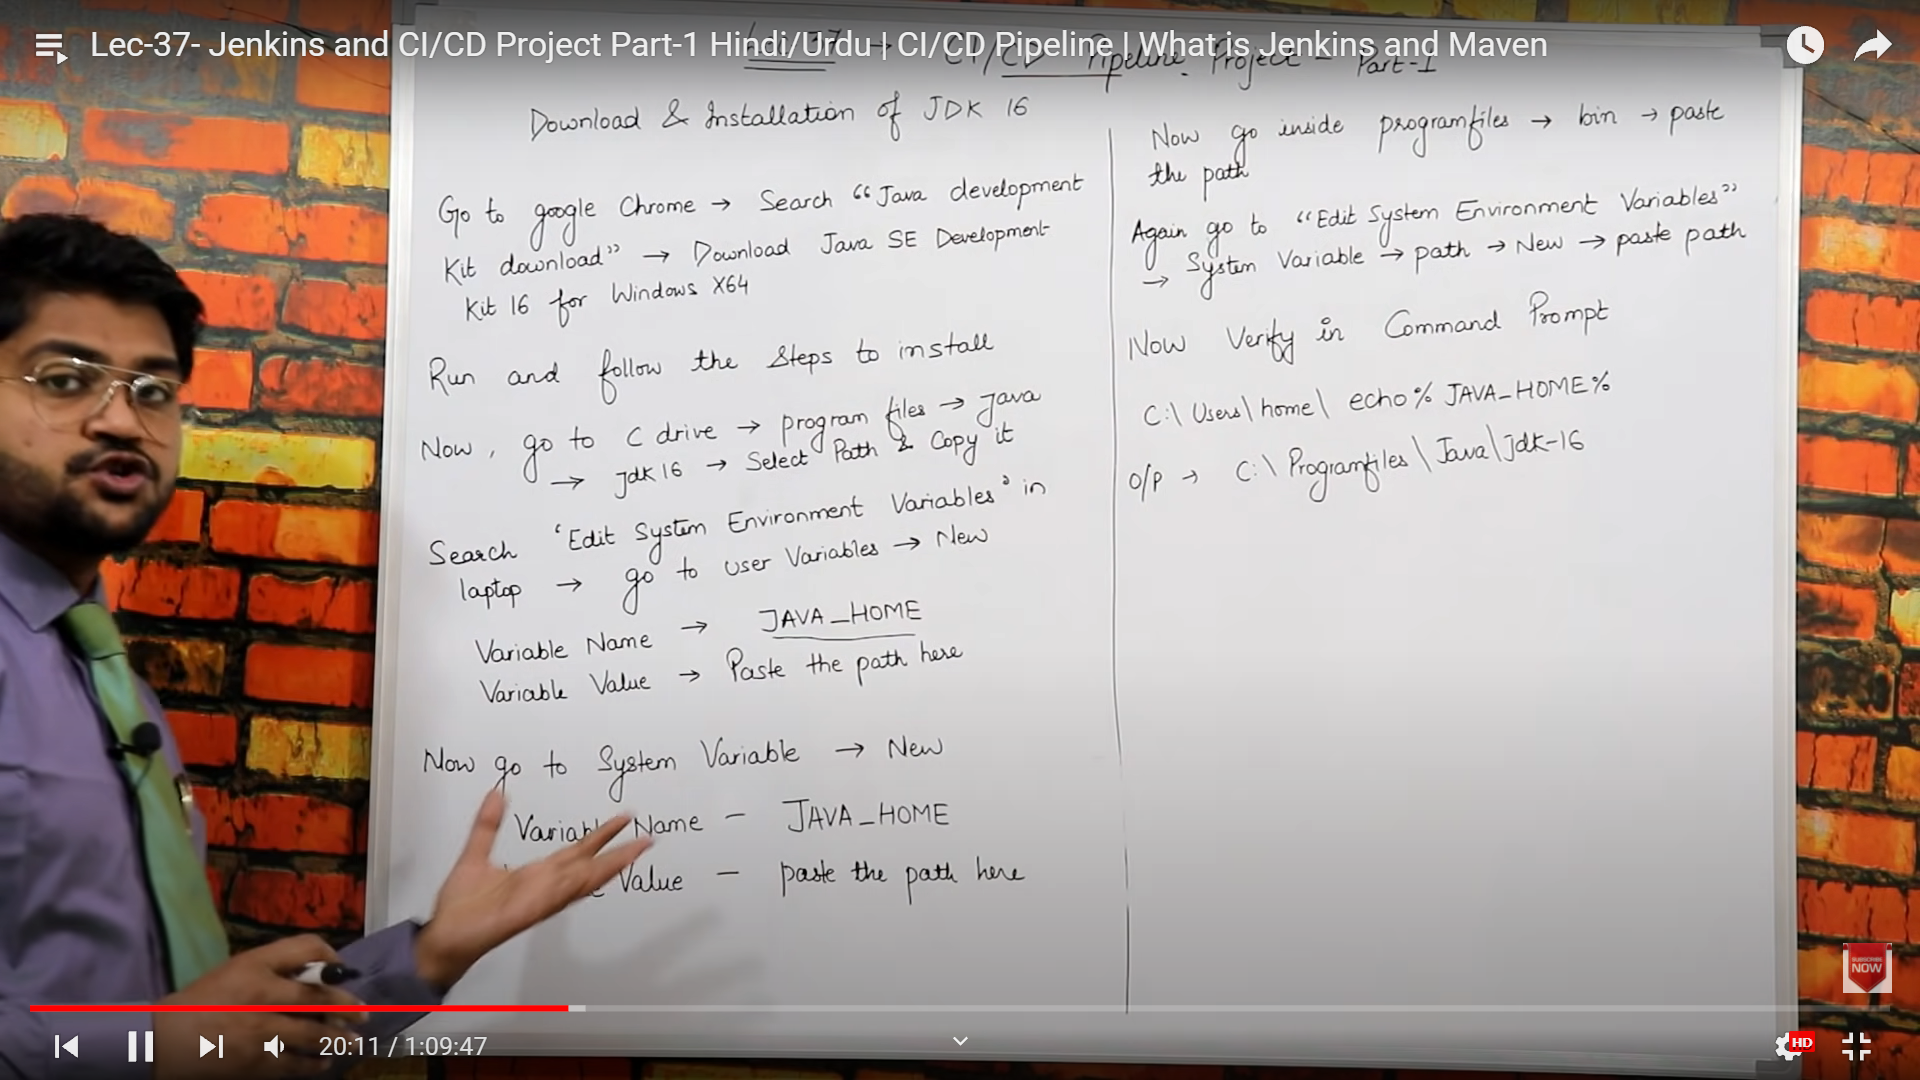 Lec-37- Jenkins and CI/CD Project Part-1 Hindi/Urdu | CI/CD Pipeline | What is Jenkins and Maven
CI/CD Pipeline Project - Part-1
Download & Installation of JDK 16
Go to google Chrome → Search “Java development
Kit download” → Download Java SE Development
Kit 16 for Windows X64
Run and follow the Steps to install
Now, go to C drive → program files → Java
→ jdk 16 → Select Path & Copy it
Search ‘Edit System Environment Variables’ in
laptop → go to user Variables → New
Variable Name → JAVA_HOME
Variable Value → Paste the path here
Now go to System Variable → New
Variable Name – JAVA_HOME
Value – paste the path here
Now go inside programfiles → bin → paste
the path
Again go to “Edit System Environment Variables”
→ System Variable → path → New → paste path
Now Verify in Command Prompt
C:\Users\home\ echo% JAVA_HOME%
O/P → C:\Programfiles\Java\jdk-16
SUBSCRIBE
NOW
20:11 / 1:09:47
HD